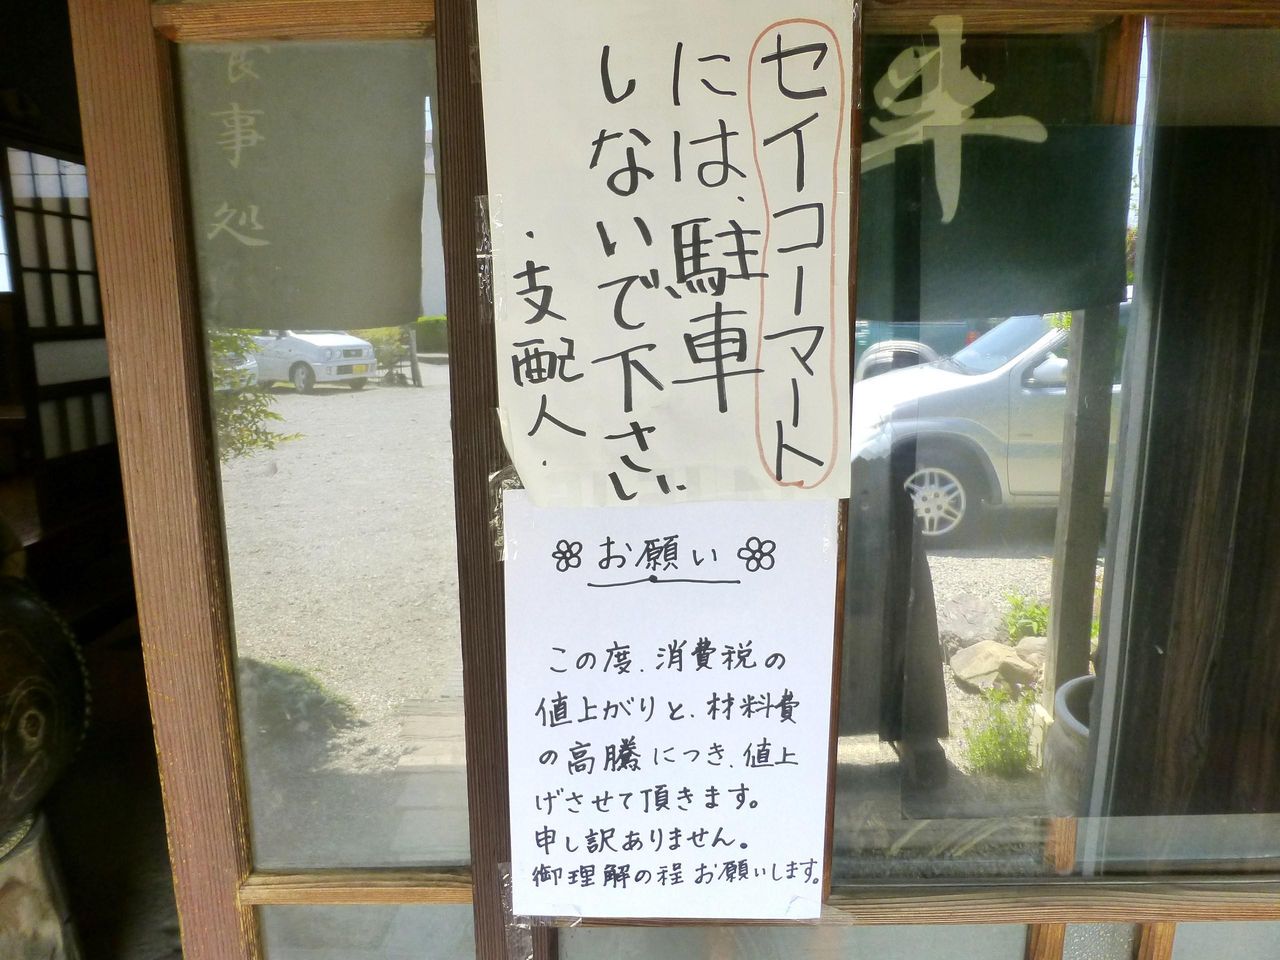 セイコーマート
には、駐車
しないで下さい
・支配人・
お願い
この度、消費税の
値上がりと、材料費
の高騰につき、値上
げさせて頂きます。
申し訳ありません。
御理解の程お願いします。
食事処
牛